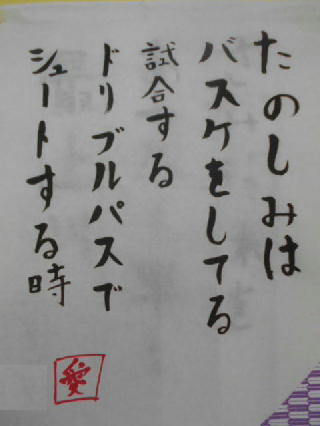 たのしみは
バスケをしてる
試合する
ドリブルパスで
シュートする時
愛